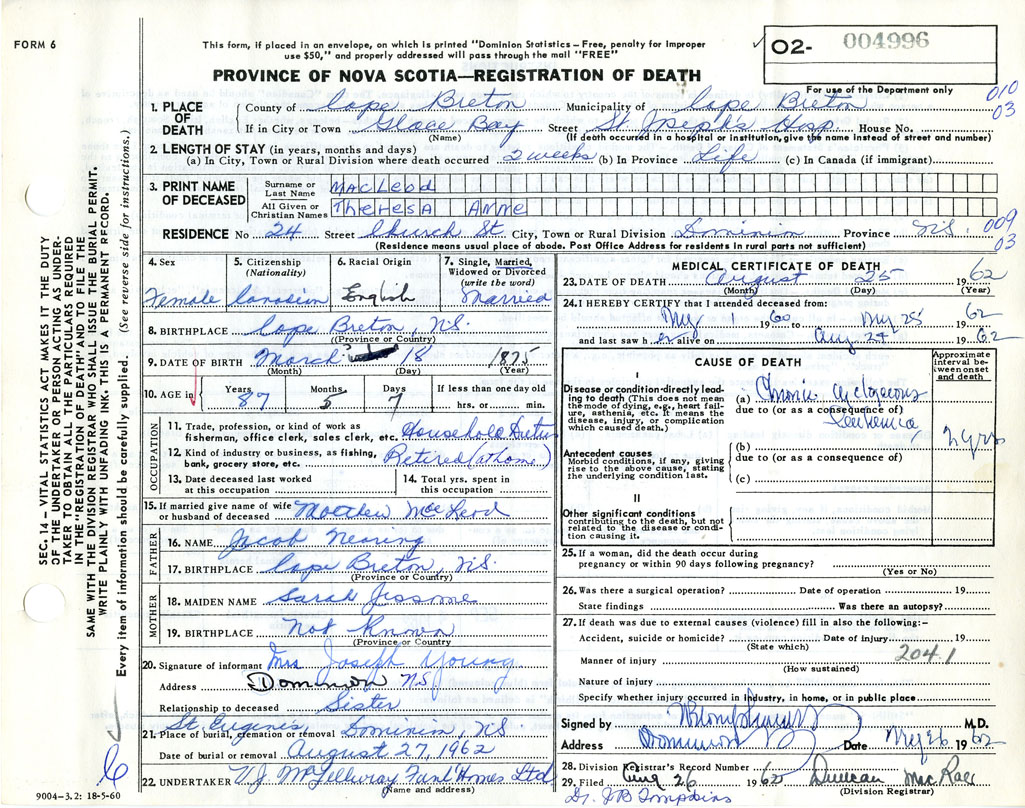 FORM 6
This form, if placed in an envelope, on which is printed "Dominion Statistics – Free, penalty for improper
use $50," and properly addressed will pass through the mail "FREE"
PROVINCE OF NOVA SCOTIA—REGISTRATION OF DEATH
✓ O2- 004996
For use of the Department only
010
03
1. PLACE OF DEATH
County of Cape Breton Municipality of Cape Breton
If in City or Town Glace Bay Street St Joseph's Hosp House No.
(Name) (If death occurred in a hospital or institution, give the name instead of street and number)
2. LENGTH OF STAY (in years, months and days)
(a) In City, Town or Rural Division where death occurred 2 weeks (b) In Province Life (c) In Canada (if immigrant)
3. PRINT NAME OF DECEASED
Surname or Last Name MacLeod
All Given or Christian Names Theresa Anne
RESIDENCE No 24 Street Church St City, Town or Rural Division Dominion Province N.S. 009
03
(Residence means usual place of abode. Post Office Address for residents in rural parts not sufficient)
4. Sex Female
5. Citizenship (Nationality) Canadian
6. Racial Origin English
7. Single, Married, Widowed or Divorced (write the word) Married
8. BIRTHPLACE Cape Breton, N.S.
(Province or Country)
9. DATE OF BIRTH March 18 1875
(Month) (Day) (Year)
10. AGE in Years 87 Months 5 Days 7 If less than one day old
hrs. or min.
OCCUPATION
11. Trade, profession, or kind of work as fisherman, office clerk, sales clerk, etc. Household Duties
12. Kind of industry or business, as fishing, bank, grocery store, etc. Retired (at home)
13. Date deceased last worked at this occupation
14. Total yrs. spent in this occupation
15. If married give name of wife or husband of deceased Matthew MacLeod
FATHER
16. NAME Jacob Nearing
17. BIRTHPLACE Cape Breton, N.S.
(Province or Country)
MOTHER
18. MAIDEN NAME Sarah Jessome
19. BIRTHPLACE Not Known
(Province or Country)
20. Signature of informant Mrs Joseph Young
Address Dominion N.S.
Relationship to deceased Sister
21. Place of burial, cremation or removal St. Eugene's Dominion, N.S.
Date of burial or removal August 27, 1962
22. UNDERTAKER V.J. McGillivray Funl Homes Ltd
(Name and address)
MEDICAL CERTIFICATE OF DEATH
23. DATE OF DEATH August 25 1962
(Month) (Day) (Year)
24. I HEREBY CERTIFY that I attended deceased from:
1 1960 to 25 1962
and last saw h er alive on Aug 24 1962
CAUSE OF DEATH
Approximate interval between onset and death
I
Disease or condition directly leading to death (This does not mean the mode of dying, e.g., heart failure, asthenia, etc. It means the disease, injury, or complication which caused death.)
(a) Chronic Mylogenous
due to (or as a consequence of)
Leukemia
2 yrs
Antecedent causes
Morbid conditions, if any, giving rise to the above cause, stating the underlying condition last.
(b)
due to (or as a consequence of)
(c)
II
Other significant conditions contributing to the death, but not related to the disease or condition causing it.
25. If a woman, did the death occur during pregnancy or within 90 days following pregnancy?
(Yes or No)
26. Was there a surgical operation? Date of operation 19
State findings Was there an autopsy?
27. If death was due to external causes (violence) fill in also the following:-
Accident, suicide or homicide? Date of injury 19
(State which)
204.1
Manner of injury
(How sustained)
Nature of injury
Specify whether injury occurred in industry, in home, or in public place
Signed by M.D.
Address Dominion Date 26 1962
28. Division Registrar's Record Number
29. Filed Aug 26 1962 Duncan MacRae
(Division Registrar)
Dr. JB Tompkins
SEC. 14 – VITAL STATISTICS ACT MAKES IT THE DUTY
OF THE UNDERTAKER OR PERSON ACTING AS UNDER-
TAKER TO OBTAIN ALL THE PARTICULARS REQUIRED
IN THE "REGISTRATION OF DEATH" AND TO FILE THE
SAME WITH THE DIVISION REGISTRAR WHO SHALL ISSUE THE BURIAL PERMIT.
WRITE PLAINLY WITH UNFADING INK. THIS IS A PERMANENT RECORD.
Every item of information should be carefully supplied. (See reverse side for instructions.)
9004-3.2: 18-5-60